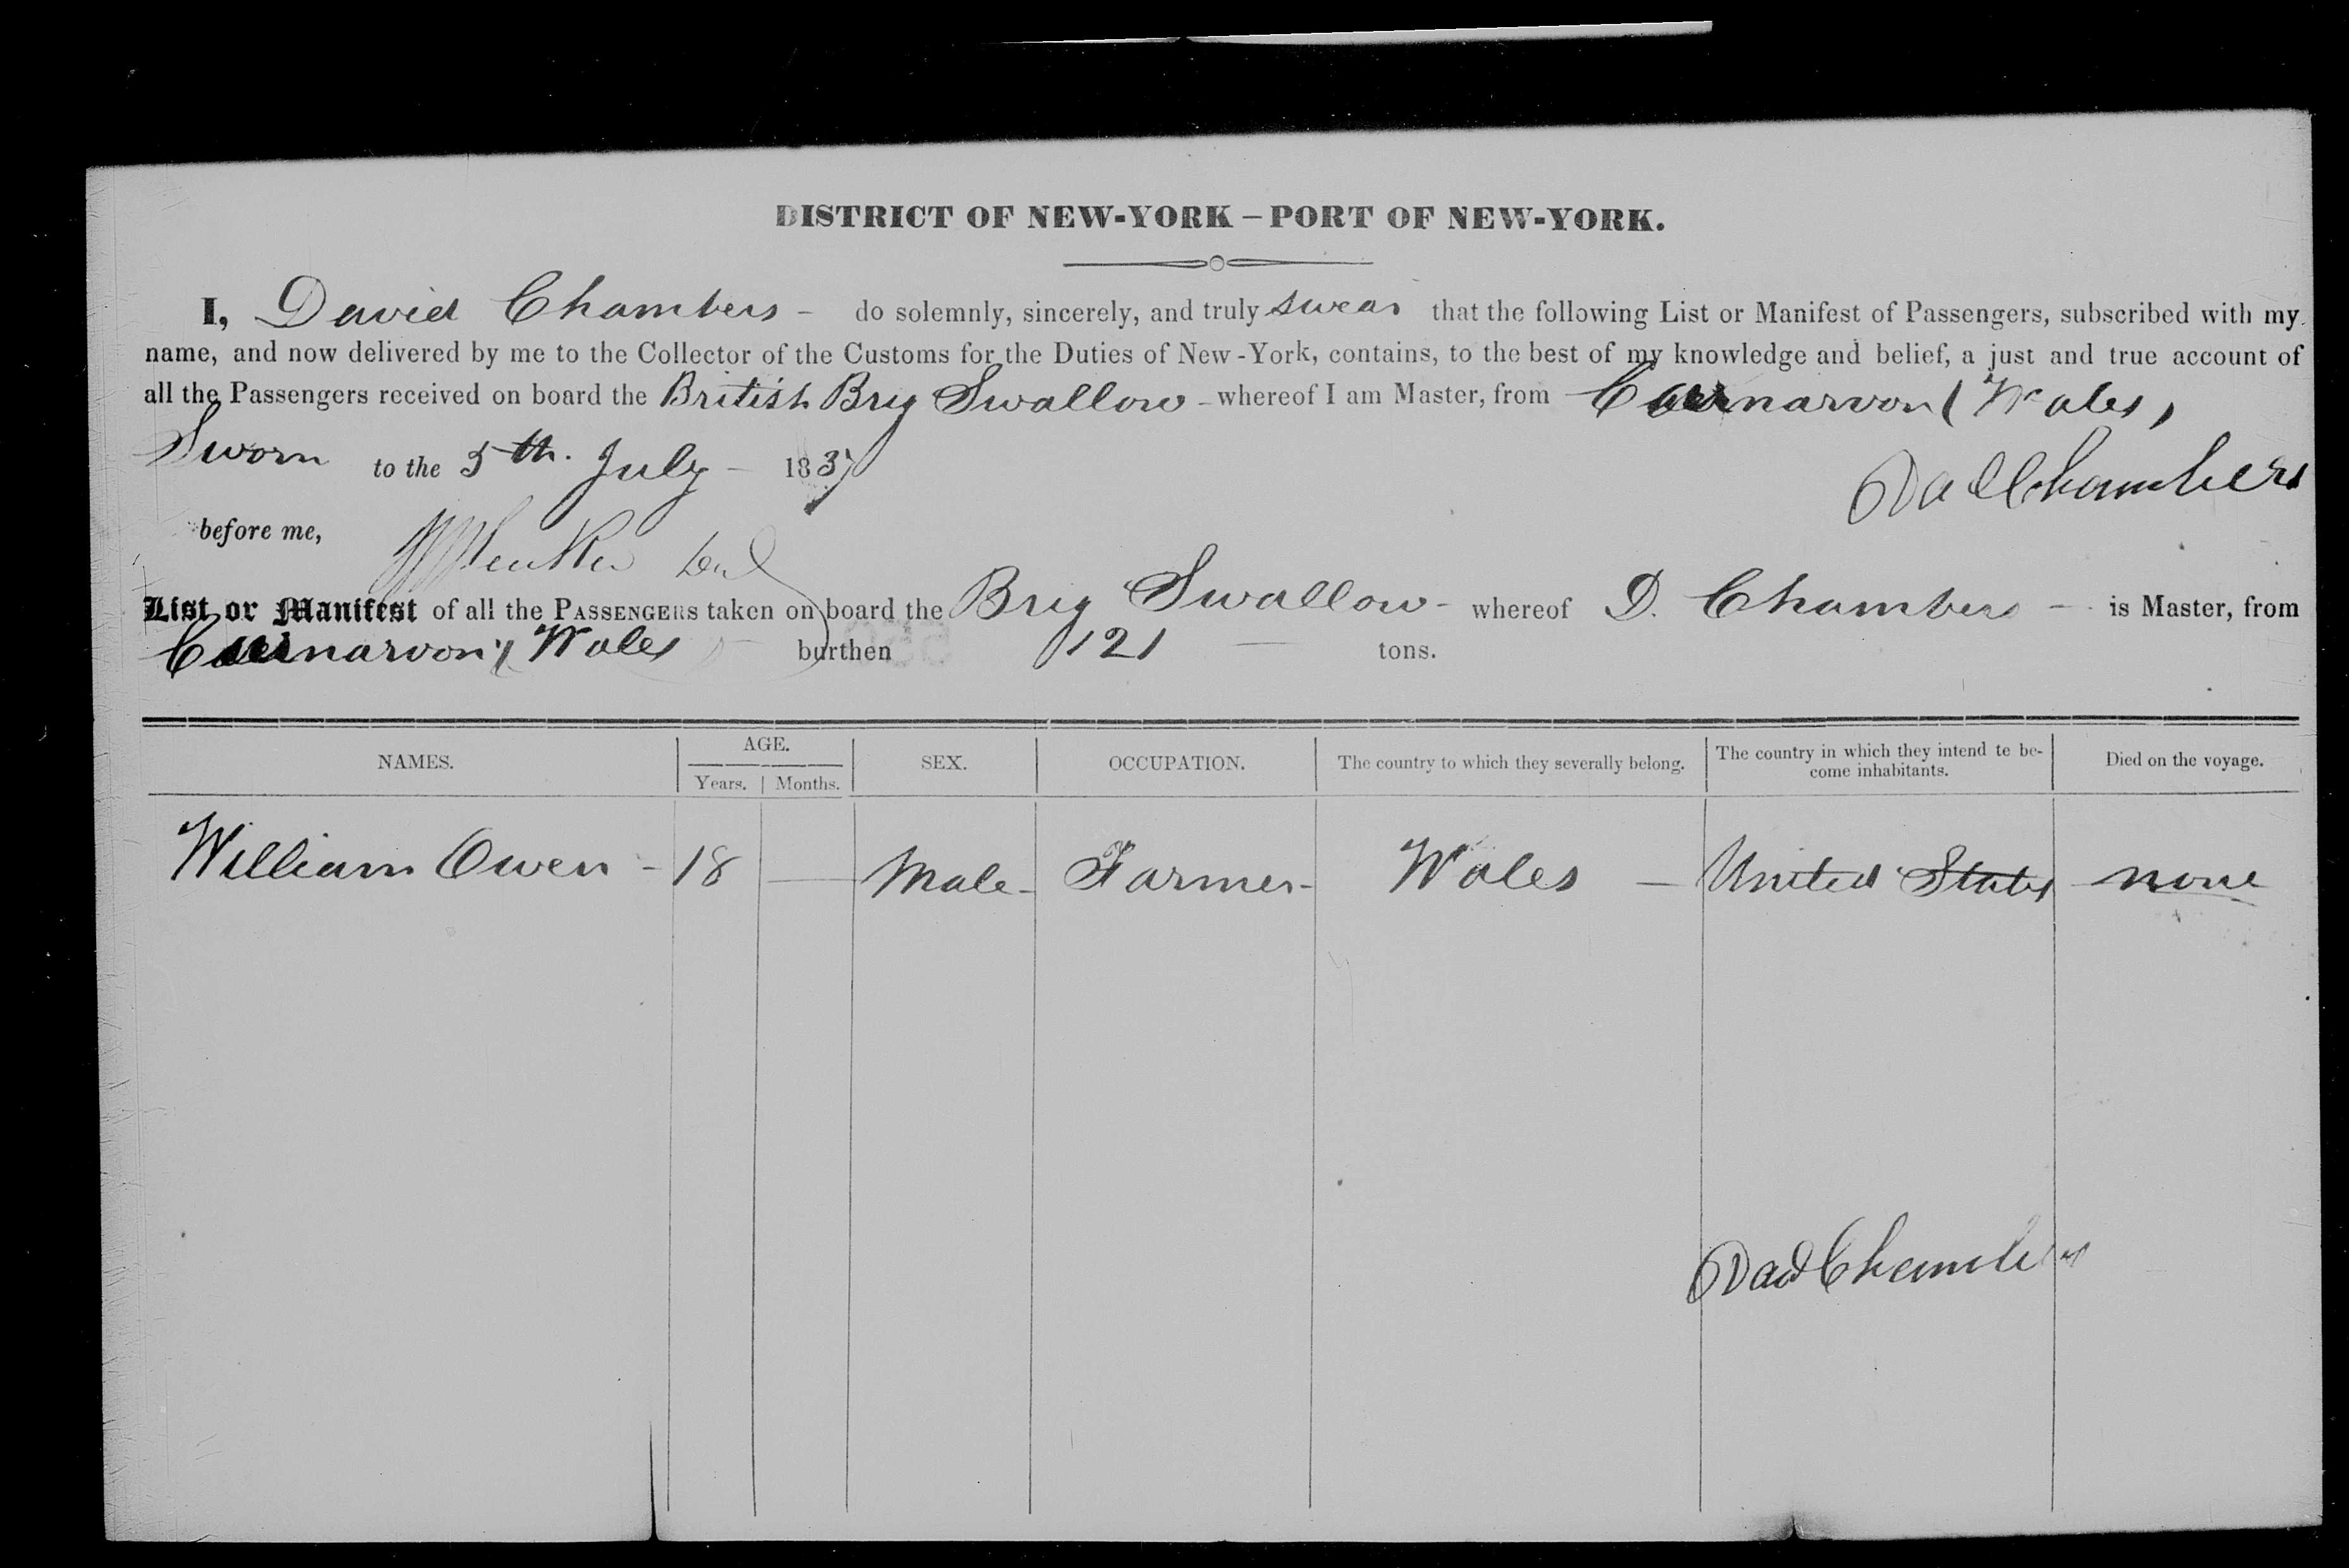 DISTRICT OF NEW-YORK – PORT OF NEW-YORK.
I, David Chambers - do solemnly, sincerely, and truly swear that the following List or Manifest of Passengers, subscribed with my
name, and now delivered by me to the Collector of the Customs for the Duties of New-York, contains, to the best of my knowledge and belief, a just and true account of
all the Passengers received on board the British Brig Swallow - whereof I am Master, from Caernarvon (Wales)
Sworn to the 5th. July - 1837
Dad Chambers
before me,
List or Manifest of all the PASSENGERS taken on board the Brig Swallow - whereof D. Chambers - is Master, from
Caernarvon (Wales burthen 121 — tons.
NAMES. AGE. SEX. OCCUPATION. The country to which they severally belong. The country in which they intend te be-
come inhabitants. Died on the voyage.
Years. Months.
William Owen - 18 — Male - Farmer - Wales — United States none
Dad Chambers